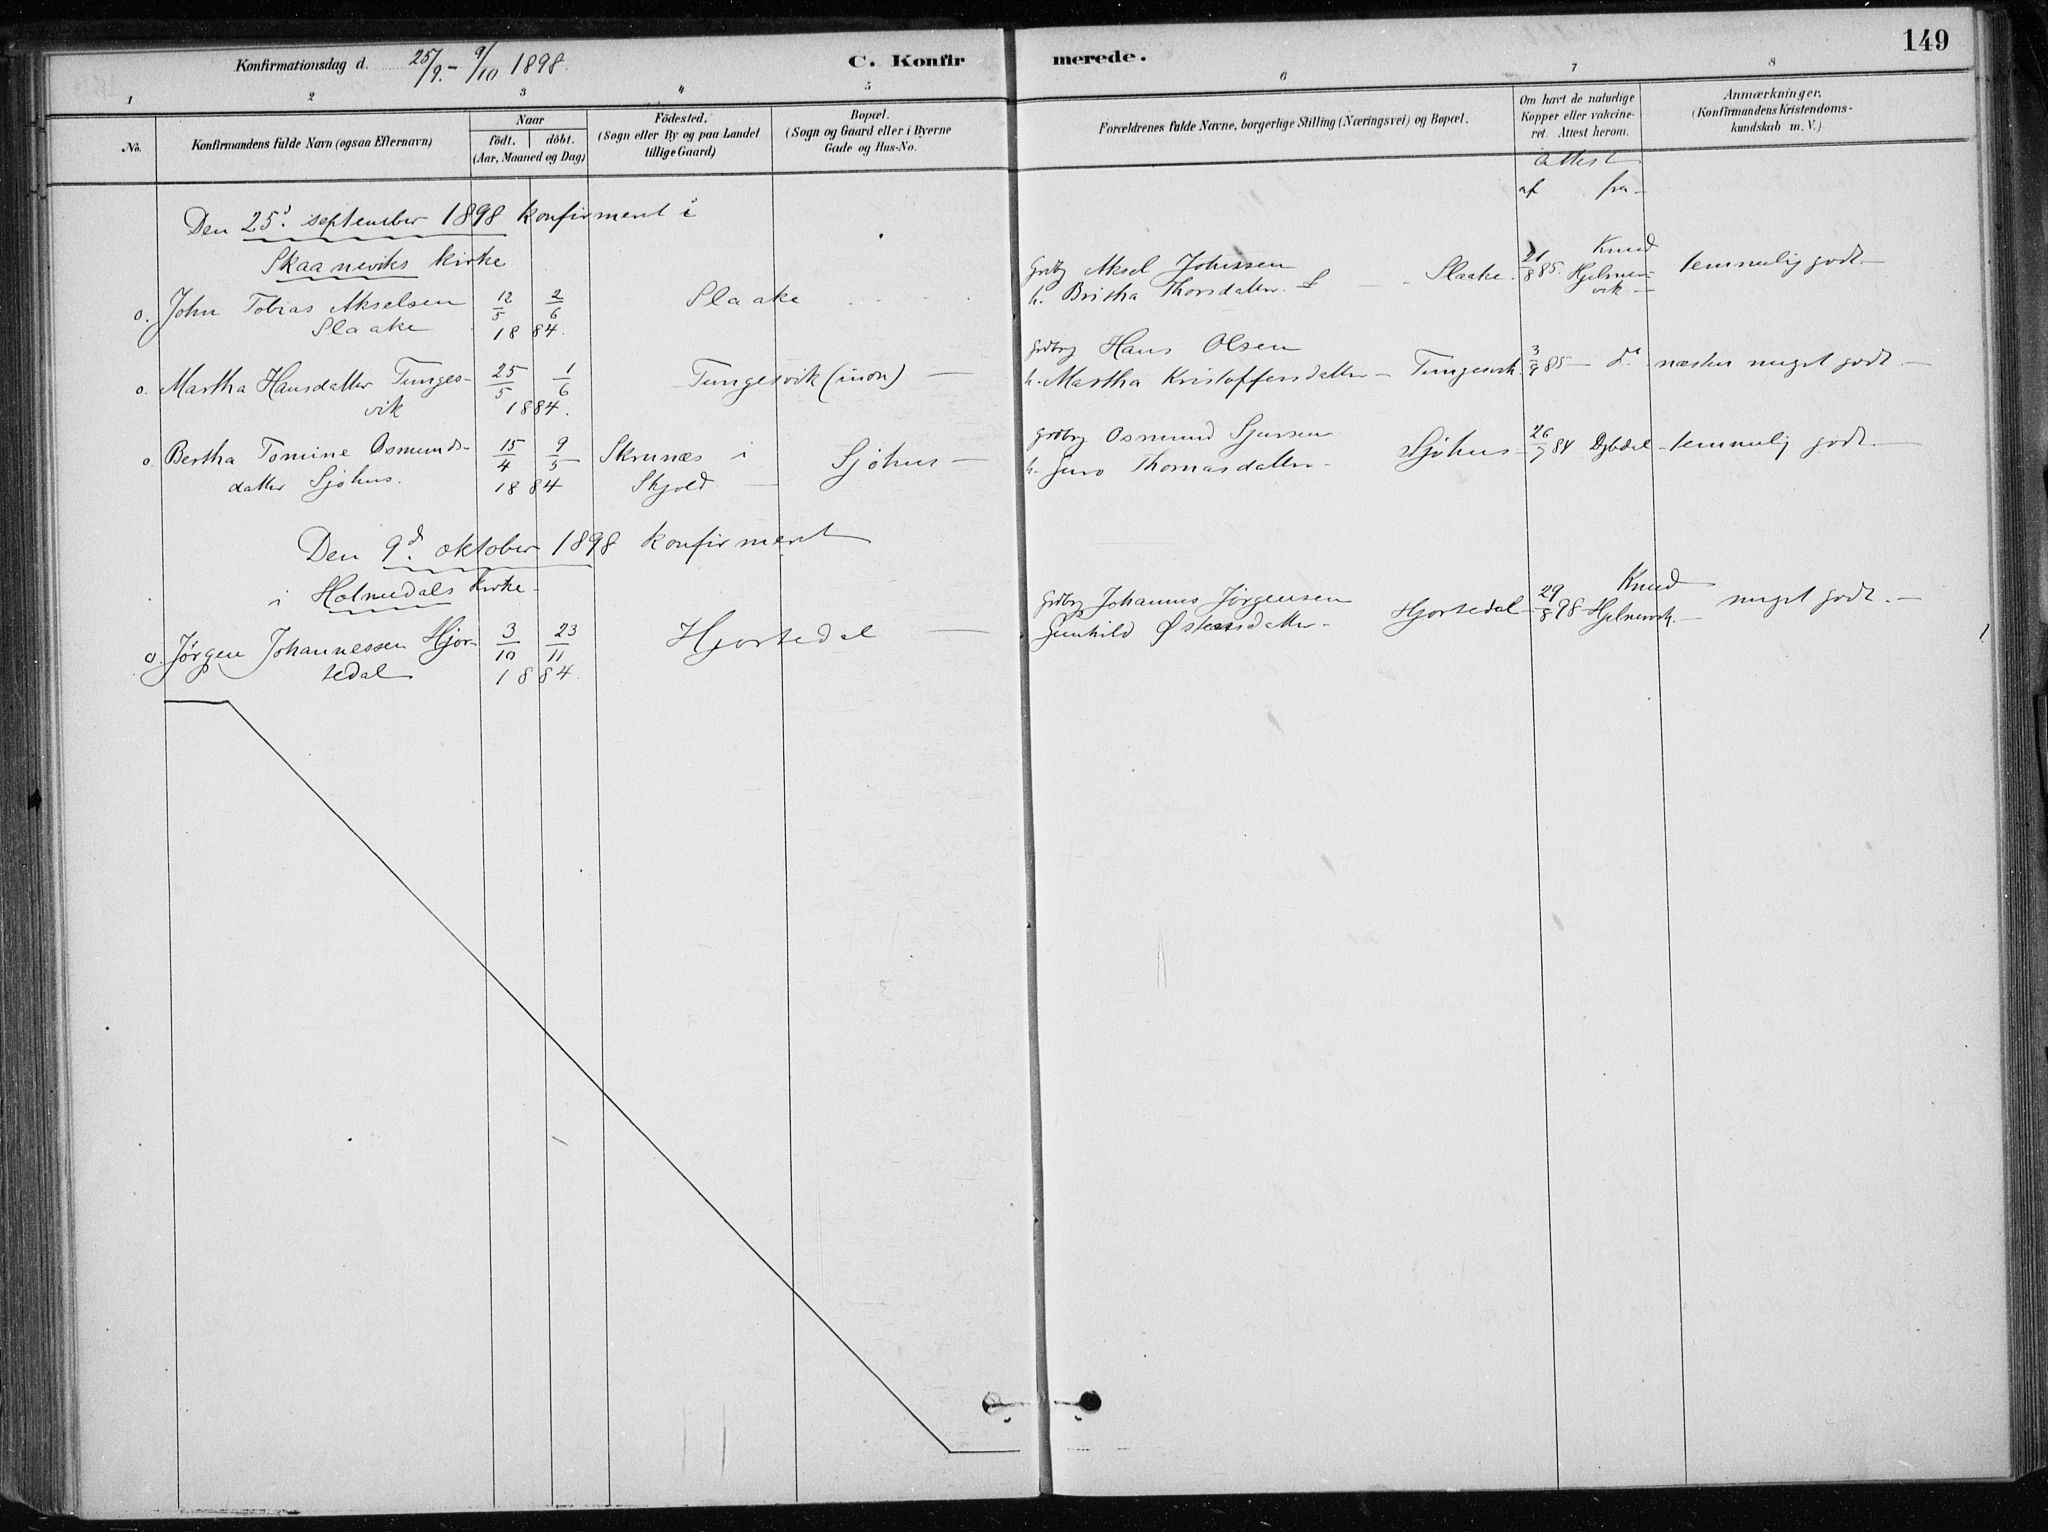 149
Konfirmationsdag d. 25/9 - 9/10 1898. C. Konfirmerede.
1 2 3 4 5 6 7 8
No. Konfirmandens fulde Navn (ogsaa Efternavn)
Naar
födt. döbt.
(Aar, Maaned og Dag)
Födested.
(Sogn eller By og paa Landet
tillige Gaard)
Bopæl.
(Sogn og Gaard eller i Byerne
Gade og Hus-No.
Forældrenes fulde Navne, borgerlige Stilling (Næringsvei) og Bopæl.
Om havt de naturlige
Kopper eller vakcine-
ret. Attest herom.
Anmærkninger.
(Konfirmandens Kristendoms-
kundskab m. V.)
Attest
af fra
Den 25d september 1898 konfirmert i
Skaaneviks kirke
o. John Tobias Akselsen 12/5 2/6 Slaake
Slaake 1884.
Grdbr Aksel Johnssen
h. Britha Thorsdatter Slaake 21/8 85. Knud Hjelmervik temmelig godt
o. Martha Hansdatter Tunges- 25/5 1/6 Tungesvik
vik 1884.
Grdbr Hans Olsen
h. Martha Kristoffersdatter Tungesvik 3/9 85 do næsten meget godt
o. Bertha Tomine Osmunds- 15/4 9/5 Skrunæs i Sjöhus
datter Sjöhus. 1884 Skjold
Grdbr Osmund Sjursen
h. Guro Thomasdatter Sjöhus 26/7 84 temmelig godt
Den 9d oktober 1898 konfirmert
i Holmedals kirke
o. Jörgen Johannessen Hjor- 3/10 23/11 Hjortedal
tedal 1884.
Grdbr Johannes Jørgensen
Gunhild Østensdatter Hjortedal 29/8 98 Knud Hjelmervik. meget godt.